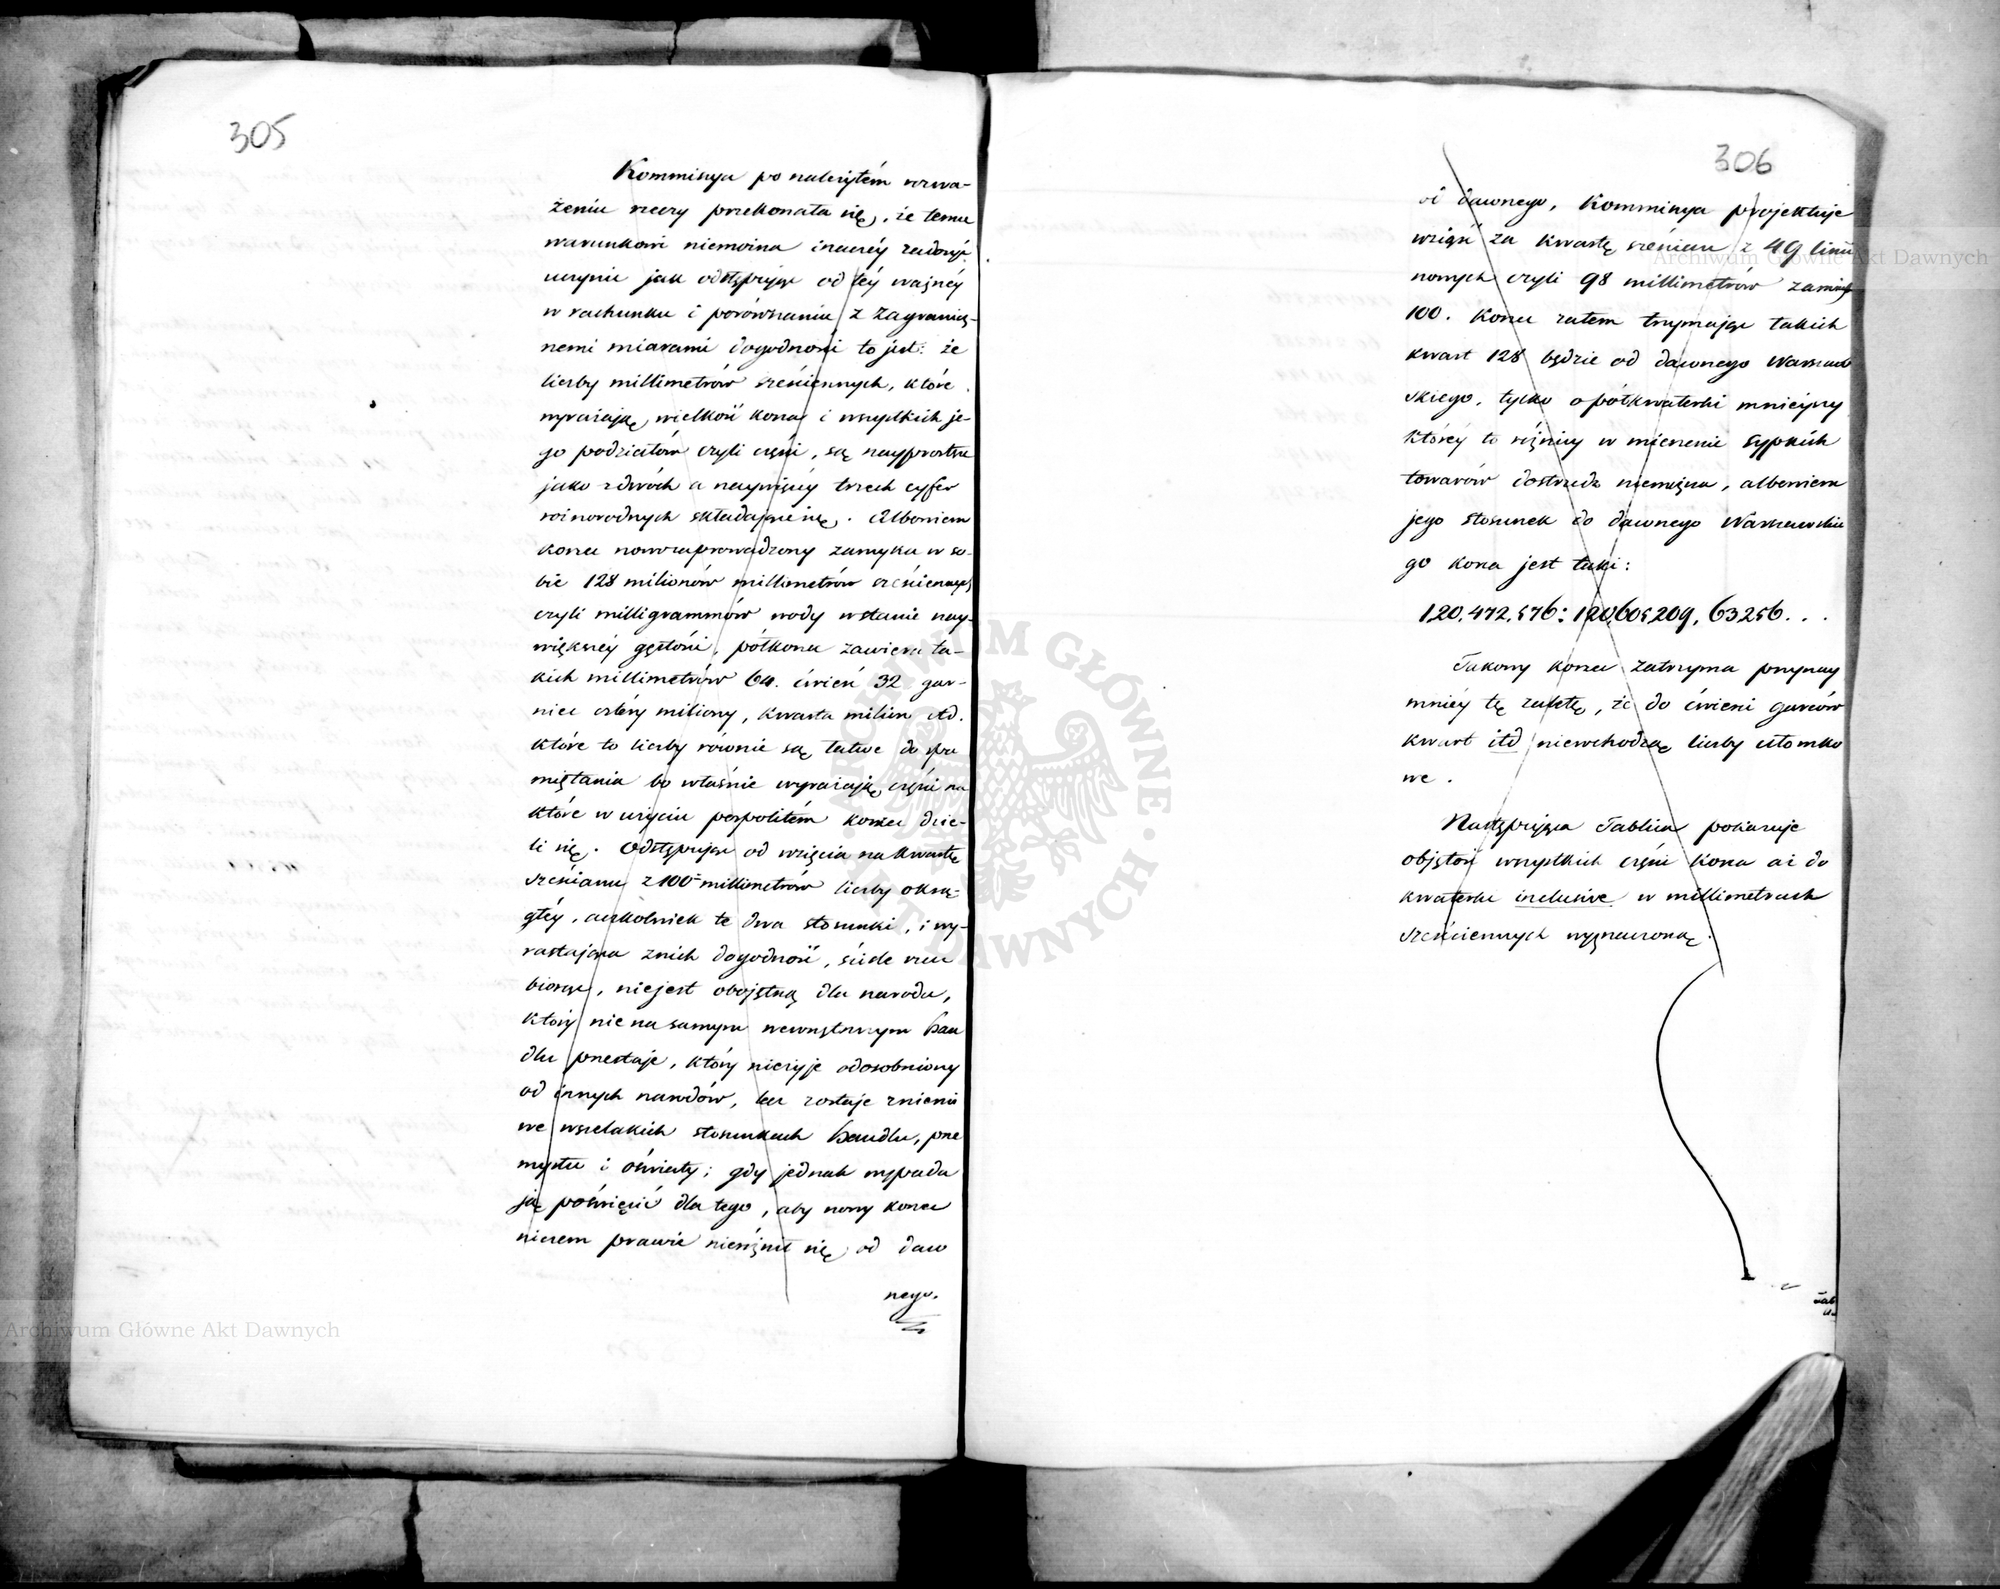 305
Kommissya po należytém rozwa-
żeniu rzeczy przekonała się, że temu
warunkowi niemożna inaczéj zadosyć
uczynić jak odstępując od téj ważnéj
w rachunku i porównaniu z zagranicz-
nemi miarami dogodności to jest: że
liczby millimetrów sześciennych, które
wyrażają wielkość korca i wszystkich je-
go podziałów czyli części, są nayprostsze
jako z dwóch a naywięcéy trzech cyfer
różnorodnych składające się. Albowiem
korzec nowozaprowadzony zamyka w so-
bie 128 milionów millimetrów sześciennych
czyli milligrammów wody w stanie nay-
większéy gęstości, półkorca zawiera ta-
kich millimetrów 64. ćwierć 32 gar-
niec cztéry miliony, kwarta milion itd.
które to liczby równie są łatwe do spa
miętania bo właśnie wyrażają części na
które w użyciu pospolitém korzec dzie-
li się. Odstępując od wzięcia na kwartę
sześcianu z 100 millimetrów liczby okrą-
głéy, aczkolwiek te dwa stosunki, i wy-
rastająca z nich dogodność, ściśle rzecz
biorąc, niejest obojętną dla narodu,
który nie na samym wewnętrznym han
dlu przestaje, który nieżyje odosobniony
od innych narodów, lecz zostaje z niemi
we wszelakich stosunkach handlu, prze
mysłu i oświaty; gdy jednak wypada
ją poświęcić dla tego, aby nowy korzec
niczem prawie nieróżnił się od daw
nego.
306
od dawnego, Kommissya projektuje
wziąść za kwartę sześcian z 49 linij
nowych czyli 98 millimetrów zamiast
100. Korzec zatem trzymając takich
kwart 128 będzie od dawnego Warszaw
skiego, tylko o półkwaterki mnieyszy
któréy to różnicy w mierzeniu sypkich
towarów dostrzedz niemożna, albowiem
jego stosunek do dawnego Warszawskie
go korca jest taki:
120,472,576: 120,605209, 63256...
Takowy korzec zatrzyma przynay
mniéy tę zaletę, że do ćwierci garców
kwart itd niewchodzą liczby ułomko
we.
Następująca Tablica pokazuje
objętość wszystkich części korca aż do
kwaterki inclusive w millimetrach
sześciennych wyznaczoną.
Tab
Archiwum Główne Akt Dawnych
Archiwum Główne Akt Dawnych
ARCHIWUM GŁÓWNE AKT DAWNYCH